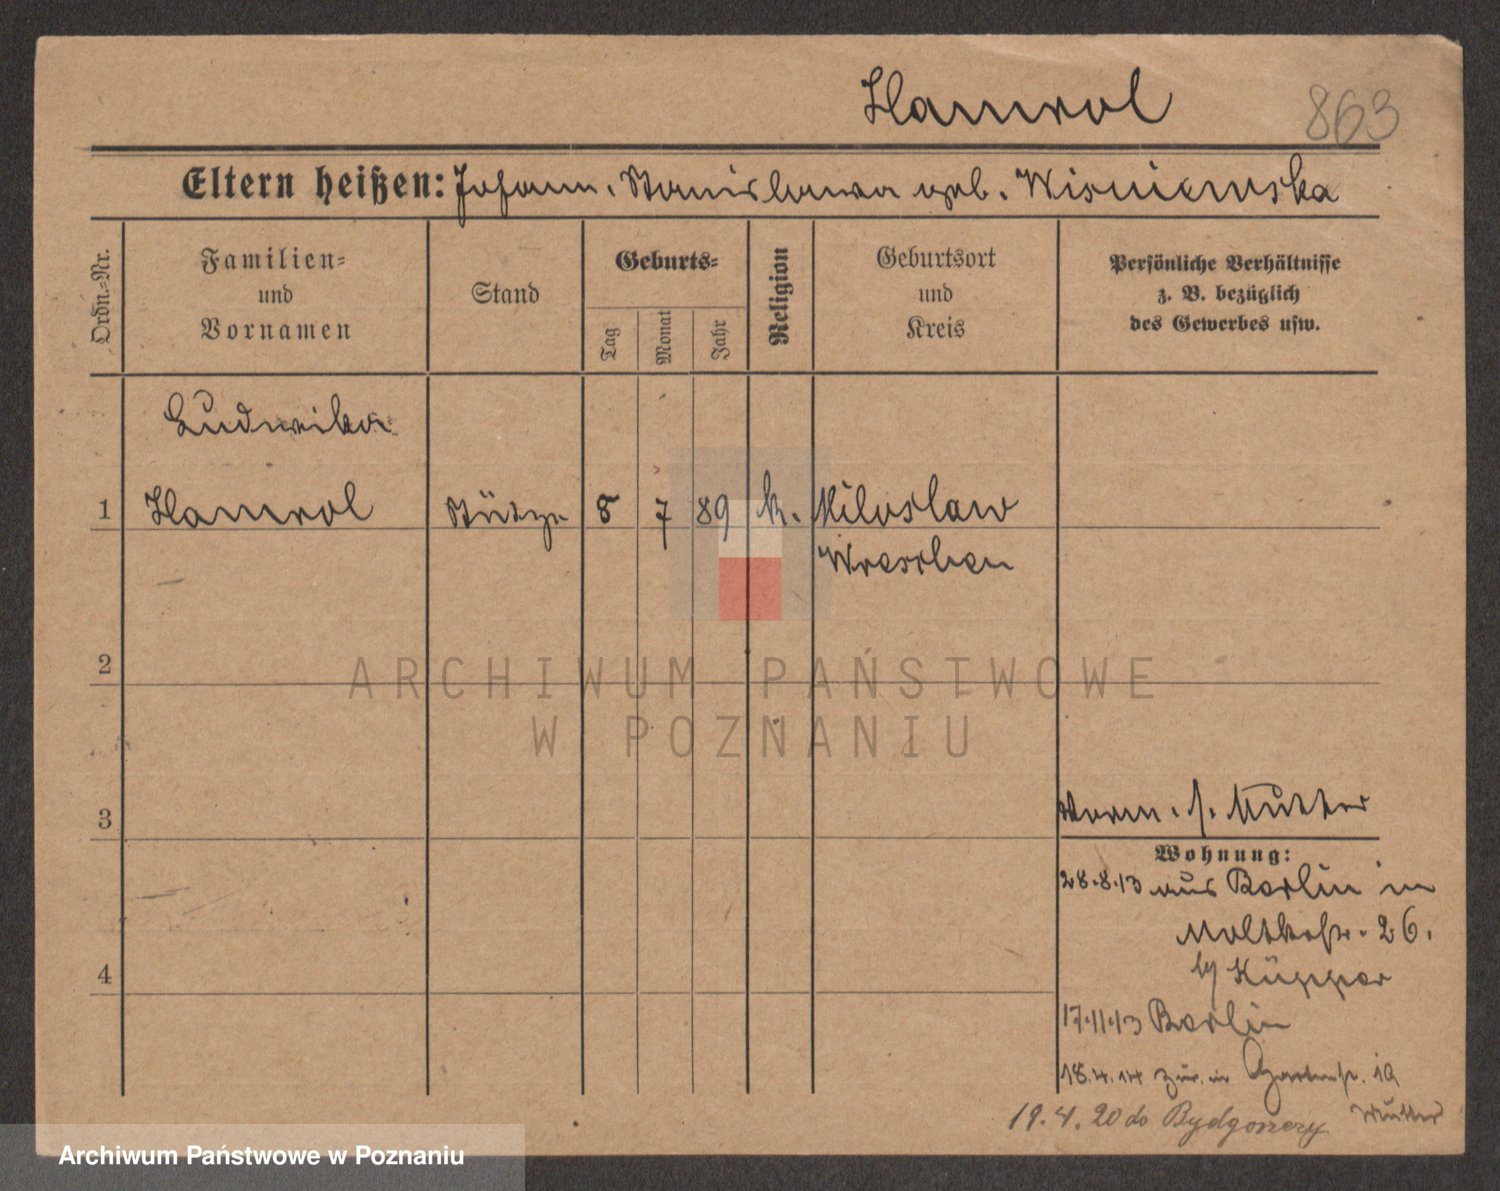 Hamrol 863
Eltern heißen: Johann, Stanislawa geb. Wisniewska
Ordn.-Nr.
Familien-
und
Vornamen
Stand
Geburts-
Tag
Monat
Jahr
Religion
Geburtsort
und
Kreis
Persönliche Verhältnisse
z. B. bezüglich
des Gewerbes usw.
Ludwika
1 Hamrol Stütze 8 7 89 k. Miloslaw
Wreschen
2
ARCHIWUM PAŃSTWOWE
W POZNANIU
3
Verm. s. Mutter
Wohnung:
28.8.13 aus Berlin in
Moltkestr. 26.
by Küpper
4
17.11.13 Berlin
18.4.14 zur. in 19
Mutter
19.4.20 do Bydgoszczy
Archiwum Państwowe w Poznaniu